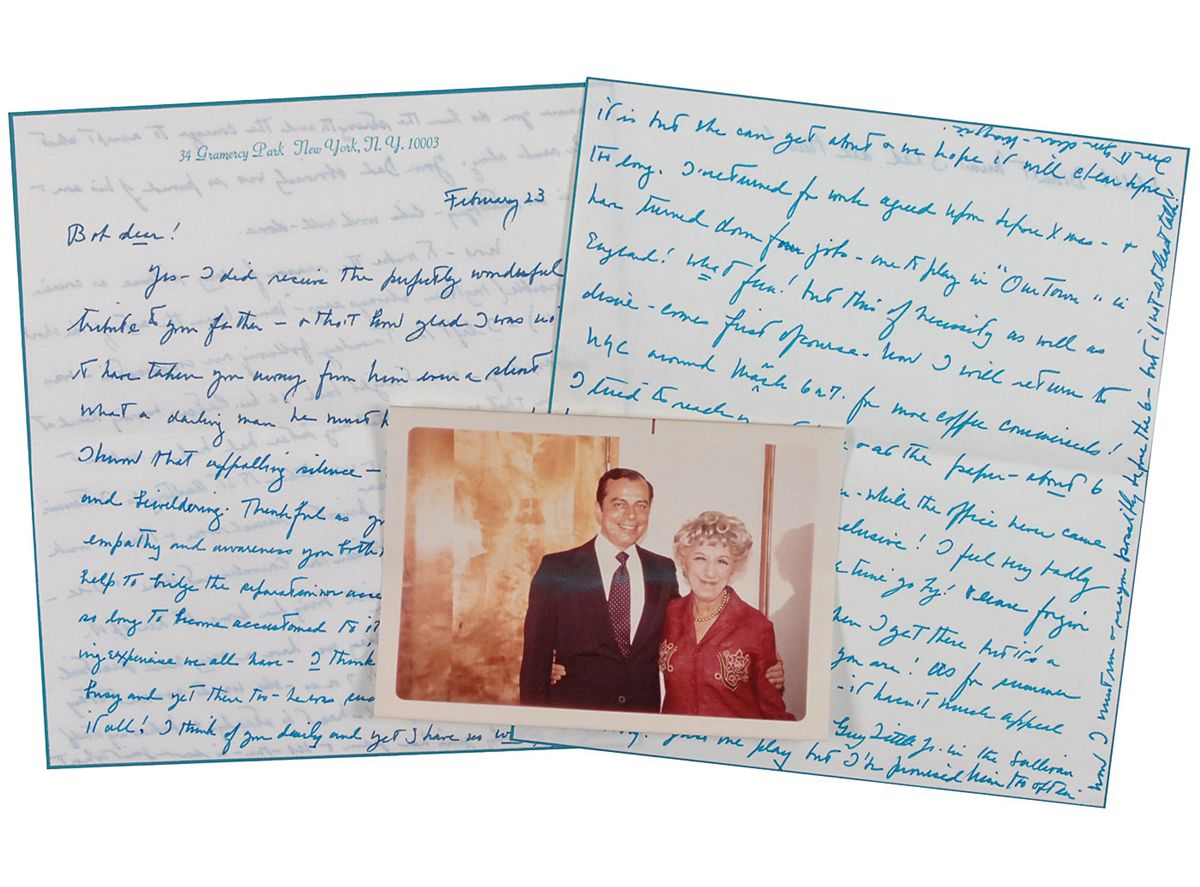 34 Gramercy Park New York, N. Y. 10003
February 23
Bob dear!
Yes - I did receive the perfectly wonderful
tribute to your father - & that how glad I was
to have taken you away from him even a short
What a darling man he must
I know that appalling silence -
and bewildering. Thankful as
empathy and awareness you both
help to bridge the separation nor
so long to become accustomed to it
ing experience we all have - I think
busy and yet there too - he was
it all! I think of you daily and yet I have
it is but she can get about & we hope it will clear before
too long. I returned for work agreed upon before Xmas - &
have turned down four jobs - one to play in "Our Town" in
England! What fun! but this of necessity as well as
desire - comes first of course. Now I will return to
NYC around March 6 or 7. for more coffee commercials!
I tried to reach
& at the paper - about 6
- while the office here came
elusive! I feel very badly
time go by! Please forgive
when I get there but it's a
you are! As for summer
- it hasn't much appeal
Guy Little Jr. in the Sullivan
one play but I've promised him too often -
now I must run & see you possibly before the 6 - but if just - at least talk!